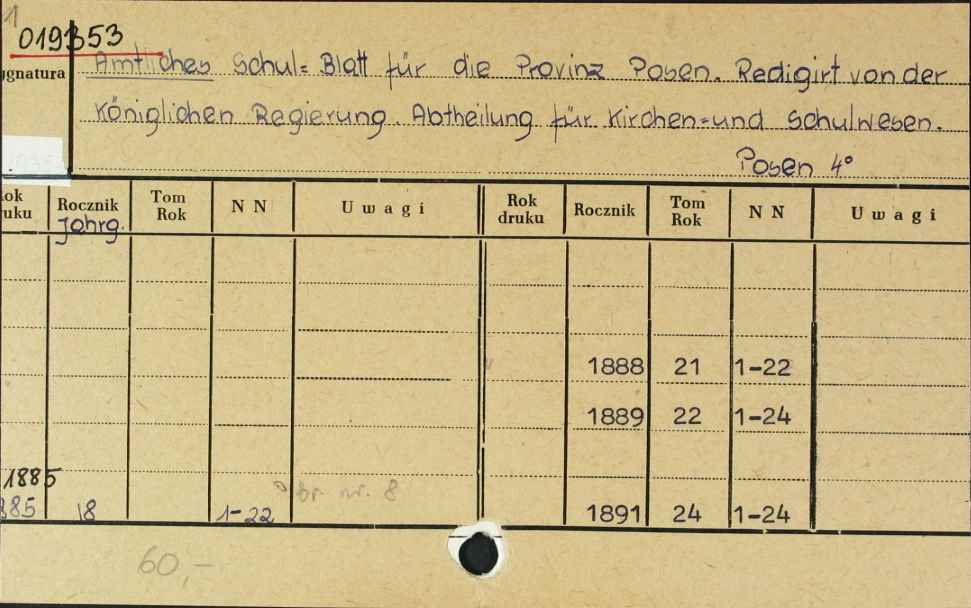 1
019353
ygnatura
Amtliches Schul= Blatt für die Provinz Posen. Redigirt von der
Königlichen Regierung. Abtheilung für Kirchen=und Schulwesen.
Posen 4°
Rok druku Rocznik Tom Rok N N Uwagi Rok druku Rocznik Tom Rok N N Uwagi
Jahrg.
1888 21 1-22
1889 22 1-24
1885
885 18 1-22 nr. 8 1891 24 1-24
60,-